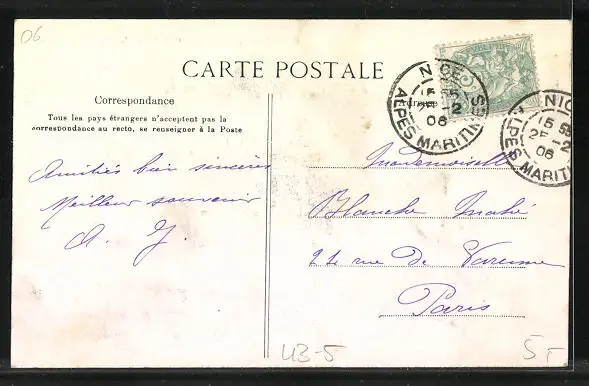 06
CARTE POSTALE
Correspondance
Tous les pays étrangers n'acceptent pas la
correspondance au recto, se renseigner à la Poste
Amitiés bien sincères
Meilleur souvenir
A. J.
NICE
15
25 -2
06
ALPES MARITIMES
NIC
15
25 -2
06
ALPES MARITIM
Mademoiselle
Blanche
rue de Varenne
Paris
UB-5
5,-